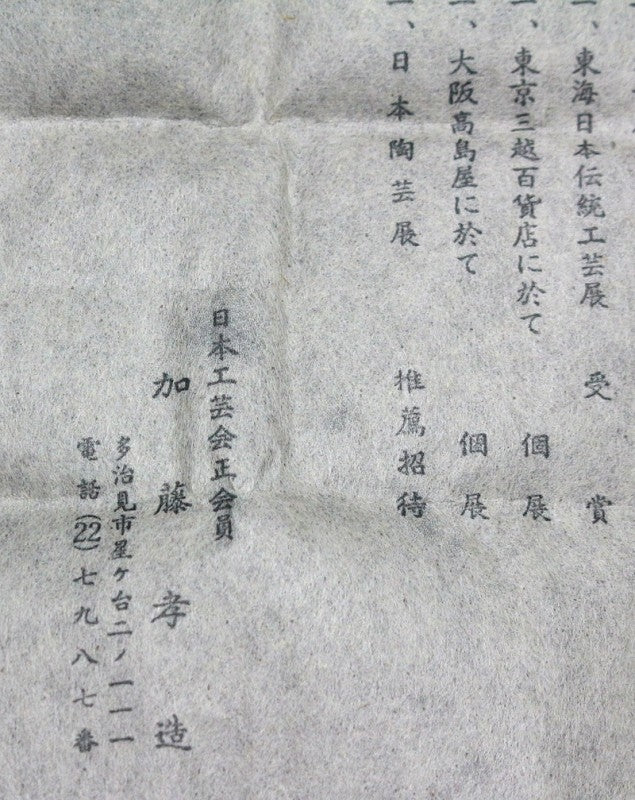 一、東海日本伝統工芸展 受賞
一、東京三越百貨店に於て 個展
一、大阪高島屋に於て 個展
一、日本陶芸展 推薦招待
日本工芸会正会員
加藤孝造
多治見市星ヶ台二ノ一一一
電話(22)七九八七番